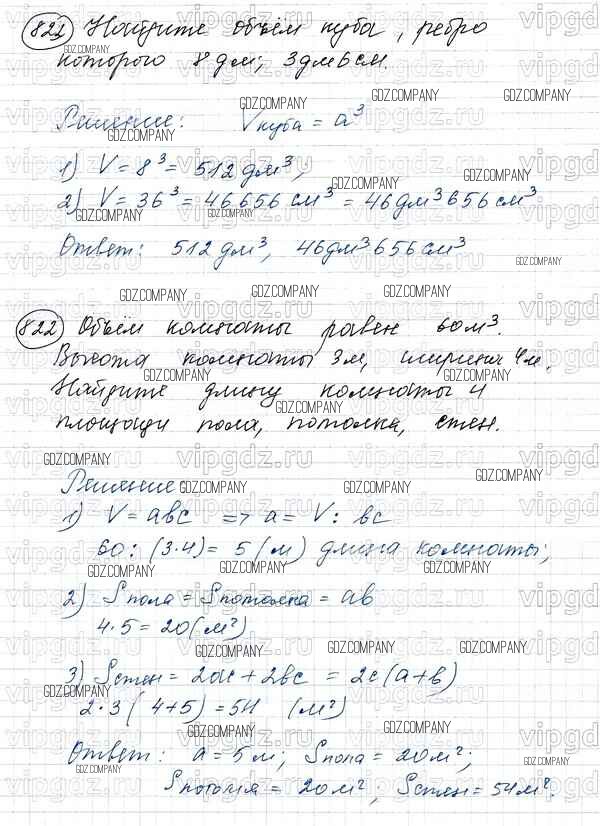 821 Найдите объём куба, ребро
которого 8 дм; 3 дм 6 см.
Решение: Vкуба = a³
1) V = 8³ = 512 дм³;
2) V = 36³ = 46656 см³ = 46 дм³ 656 см³
Ответ: 512 дм³, 46 дм³ 656 см³
822 Объём комнаты равен 60 м³.
Высота комнаты 3 м, ширина 4 м.
Найдите длину комнаты и
площади пола, потолка, стен.
Решение:
1) V = abc => a = V : bc
60 : (3·4) = 5 (м) длина комнаты;
2) Sпола = Sпотолка = ab
4·5 = 20 (м²)
3) Sстен = 2ac + 2bc = 2c(a+b)
2·3(4+5) = 54 (м²)
Ответ: a = 5 м; Sпола = 20 м²;
Sпотолка = 20 м²; Sстен = 54 м².
vipgdz.ru
GDZ.COMPANY